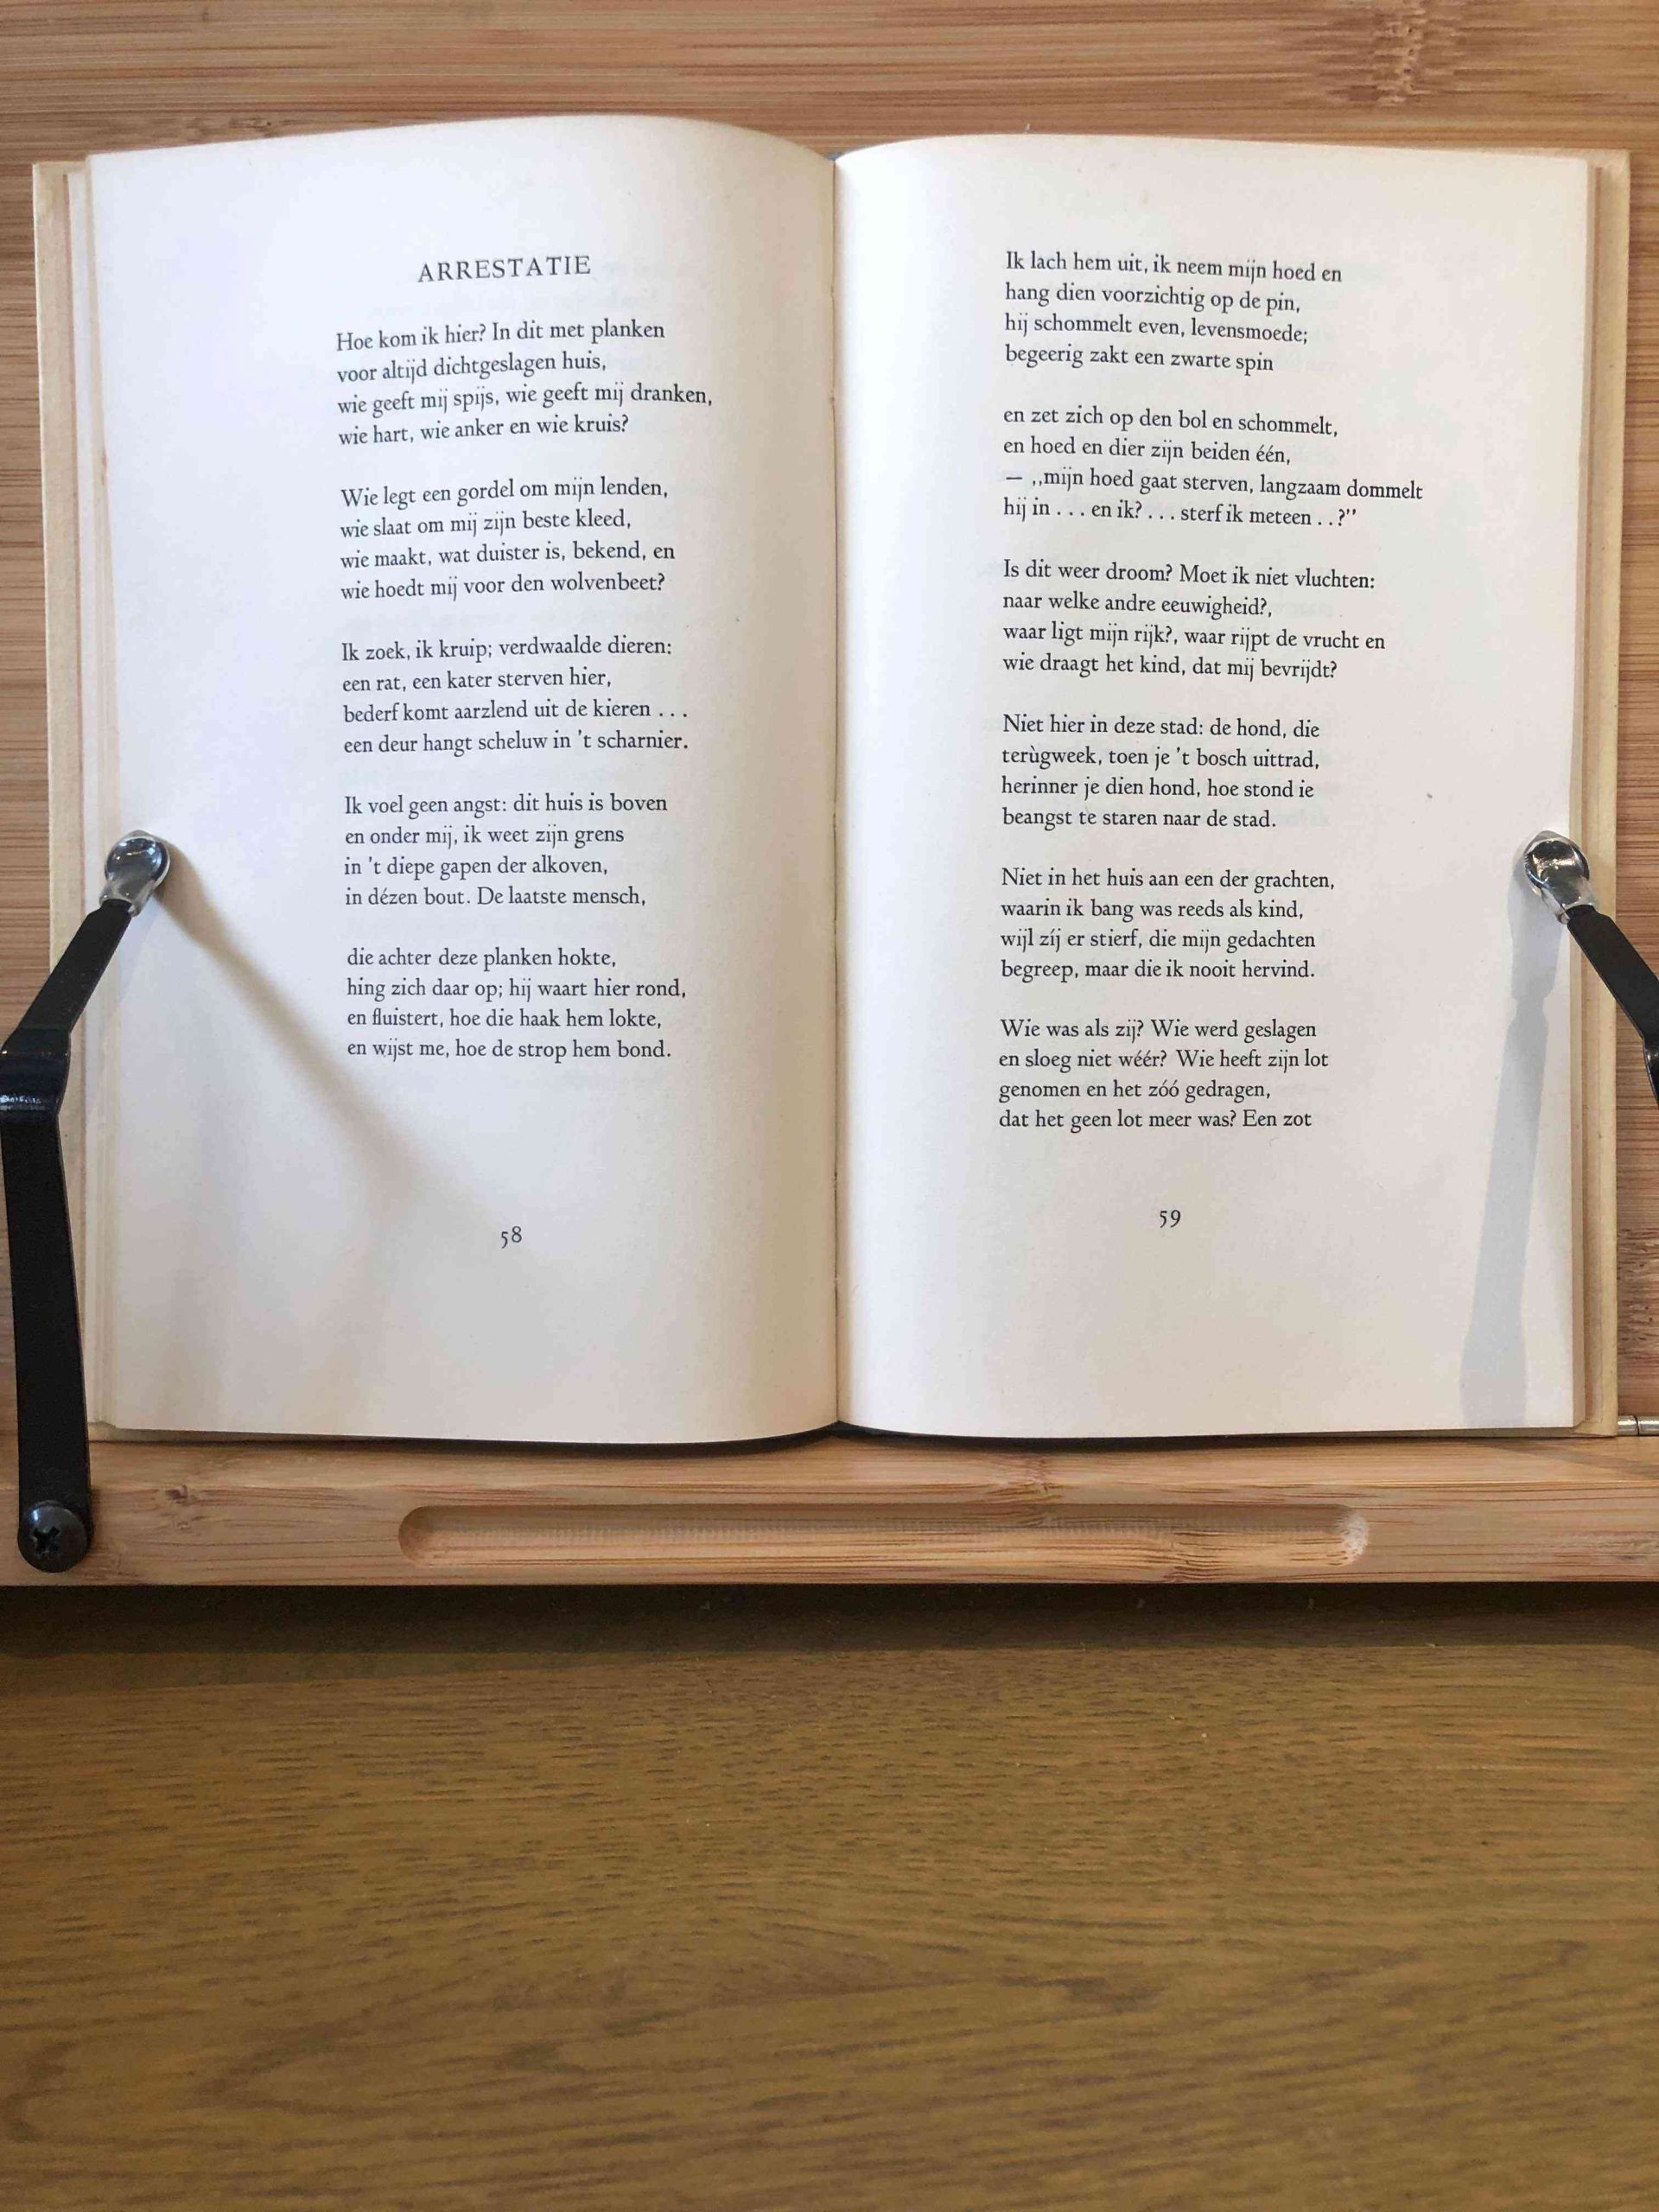 ARRESTATIE
Hoe kom ik hier? In dit met planken
voor altijd dichtgeslagen huis,
wie geeft mij spijs, wie geeft mij dranken,
wie hart, wie anker en wie kruis?
Wie legt een gordel om mijn lenden,
wie slaat om mij zijn beste kleed,
wie maakt, wat duister is, bekend, en
wie hoedt mij voor den wolvenbeet?
Ik zoek, ik kruip; verdwaalde dieren:
een rat, een kater sterven hier,
bederf komt aarzlend uit de kieren . . .
een deur hangt scheluw in 't scharnier.
Ik voel geen angst: dit huis is boven
en onder mij, ik weet zijn grens
in 't diepe gapen der alkoven,
in dézen bout. De laatste mensch,
die achter deze planken hokte,
hing zich daar op; hij waart hier rond,
en fluistert, hoe die haak hem lokte,
en wijst me, hoe de strop hem bond.
58
Ik lach hem uit, ik neem mijn hoed en
hang dien voorzichtig op de pin,
hij schommelt even, levensmoede;
begeerig zakt een zwarte spin
en zet zich op den bol en schommelt,
en hoed en dier zijn beiden één,
— ,,mijn hoed gaat sterven, langzaam dommelt
hij in . . . en ik? . . . sterf ik meteen . . ?''
Is dit weer droom? Moet ik niet vluchten:
naar welke andre eeuwigheid?,
waar ligt mijn rijk?, waar rijpt de vrucht en
wie draagt het kind, dat mij bevrijdt?
Niet hier in deze stad: de hond, die
terùgweek, toen je 't bosch uittrad,
herinner je dien hond, hoe stond ie
beangst te staren naar de stad.
Niet in het huis aan een der grachten,
waarin ik bang was reeds als kind,
wijl zíj er stierf, die mijn gedachten
begreep, maar die ik nooit hervind.
Wie was als zij? Wie werd geslagen
en sloeg niet wéér? Wie heeft zijn lot
genomen en het zóó gedragen,
dat het geen lot meer was? Een zot
59